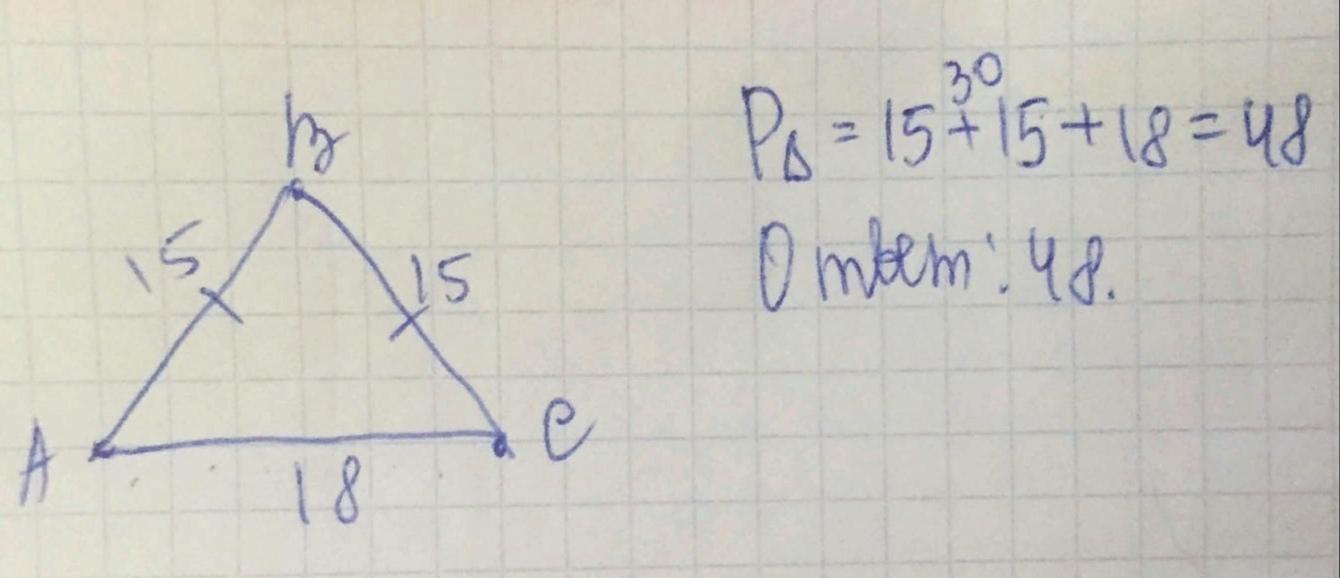 B
30
P∆ = 15+15+18=48
15
15
Ответ: 48.
A
C
18